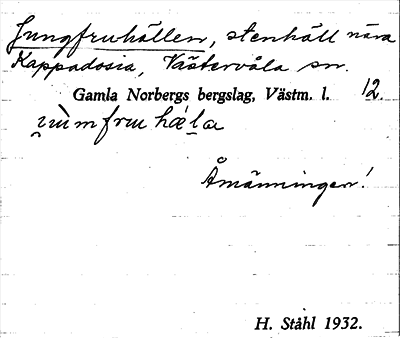 Jungfruhällen, stenhäll nära
Kappadosia, Västervåla sn.
Gamla Norbergs bergslag, Västm. l. 12.
Åmänningen!
H. Ståhl 1932.